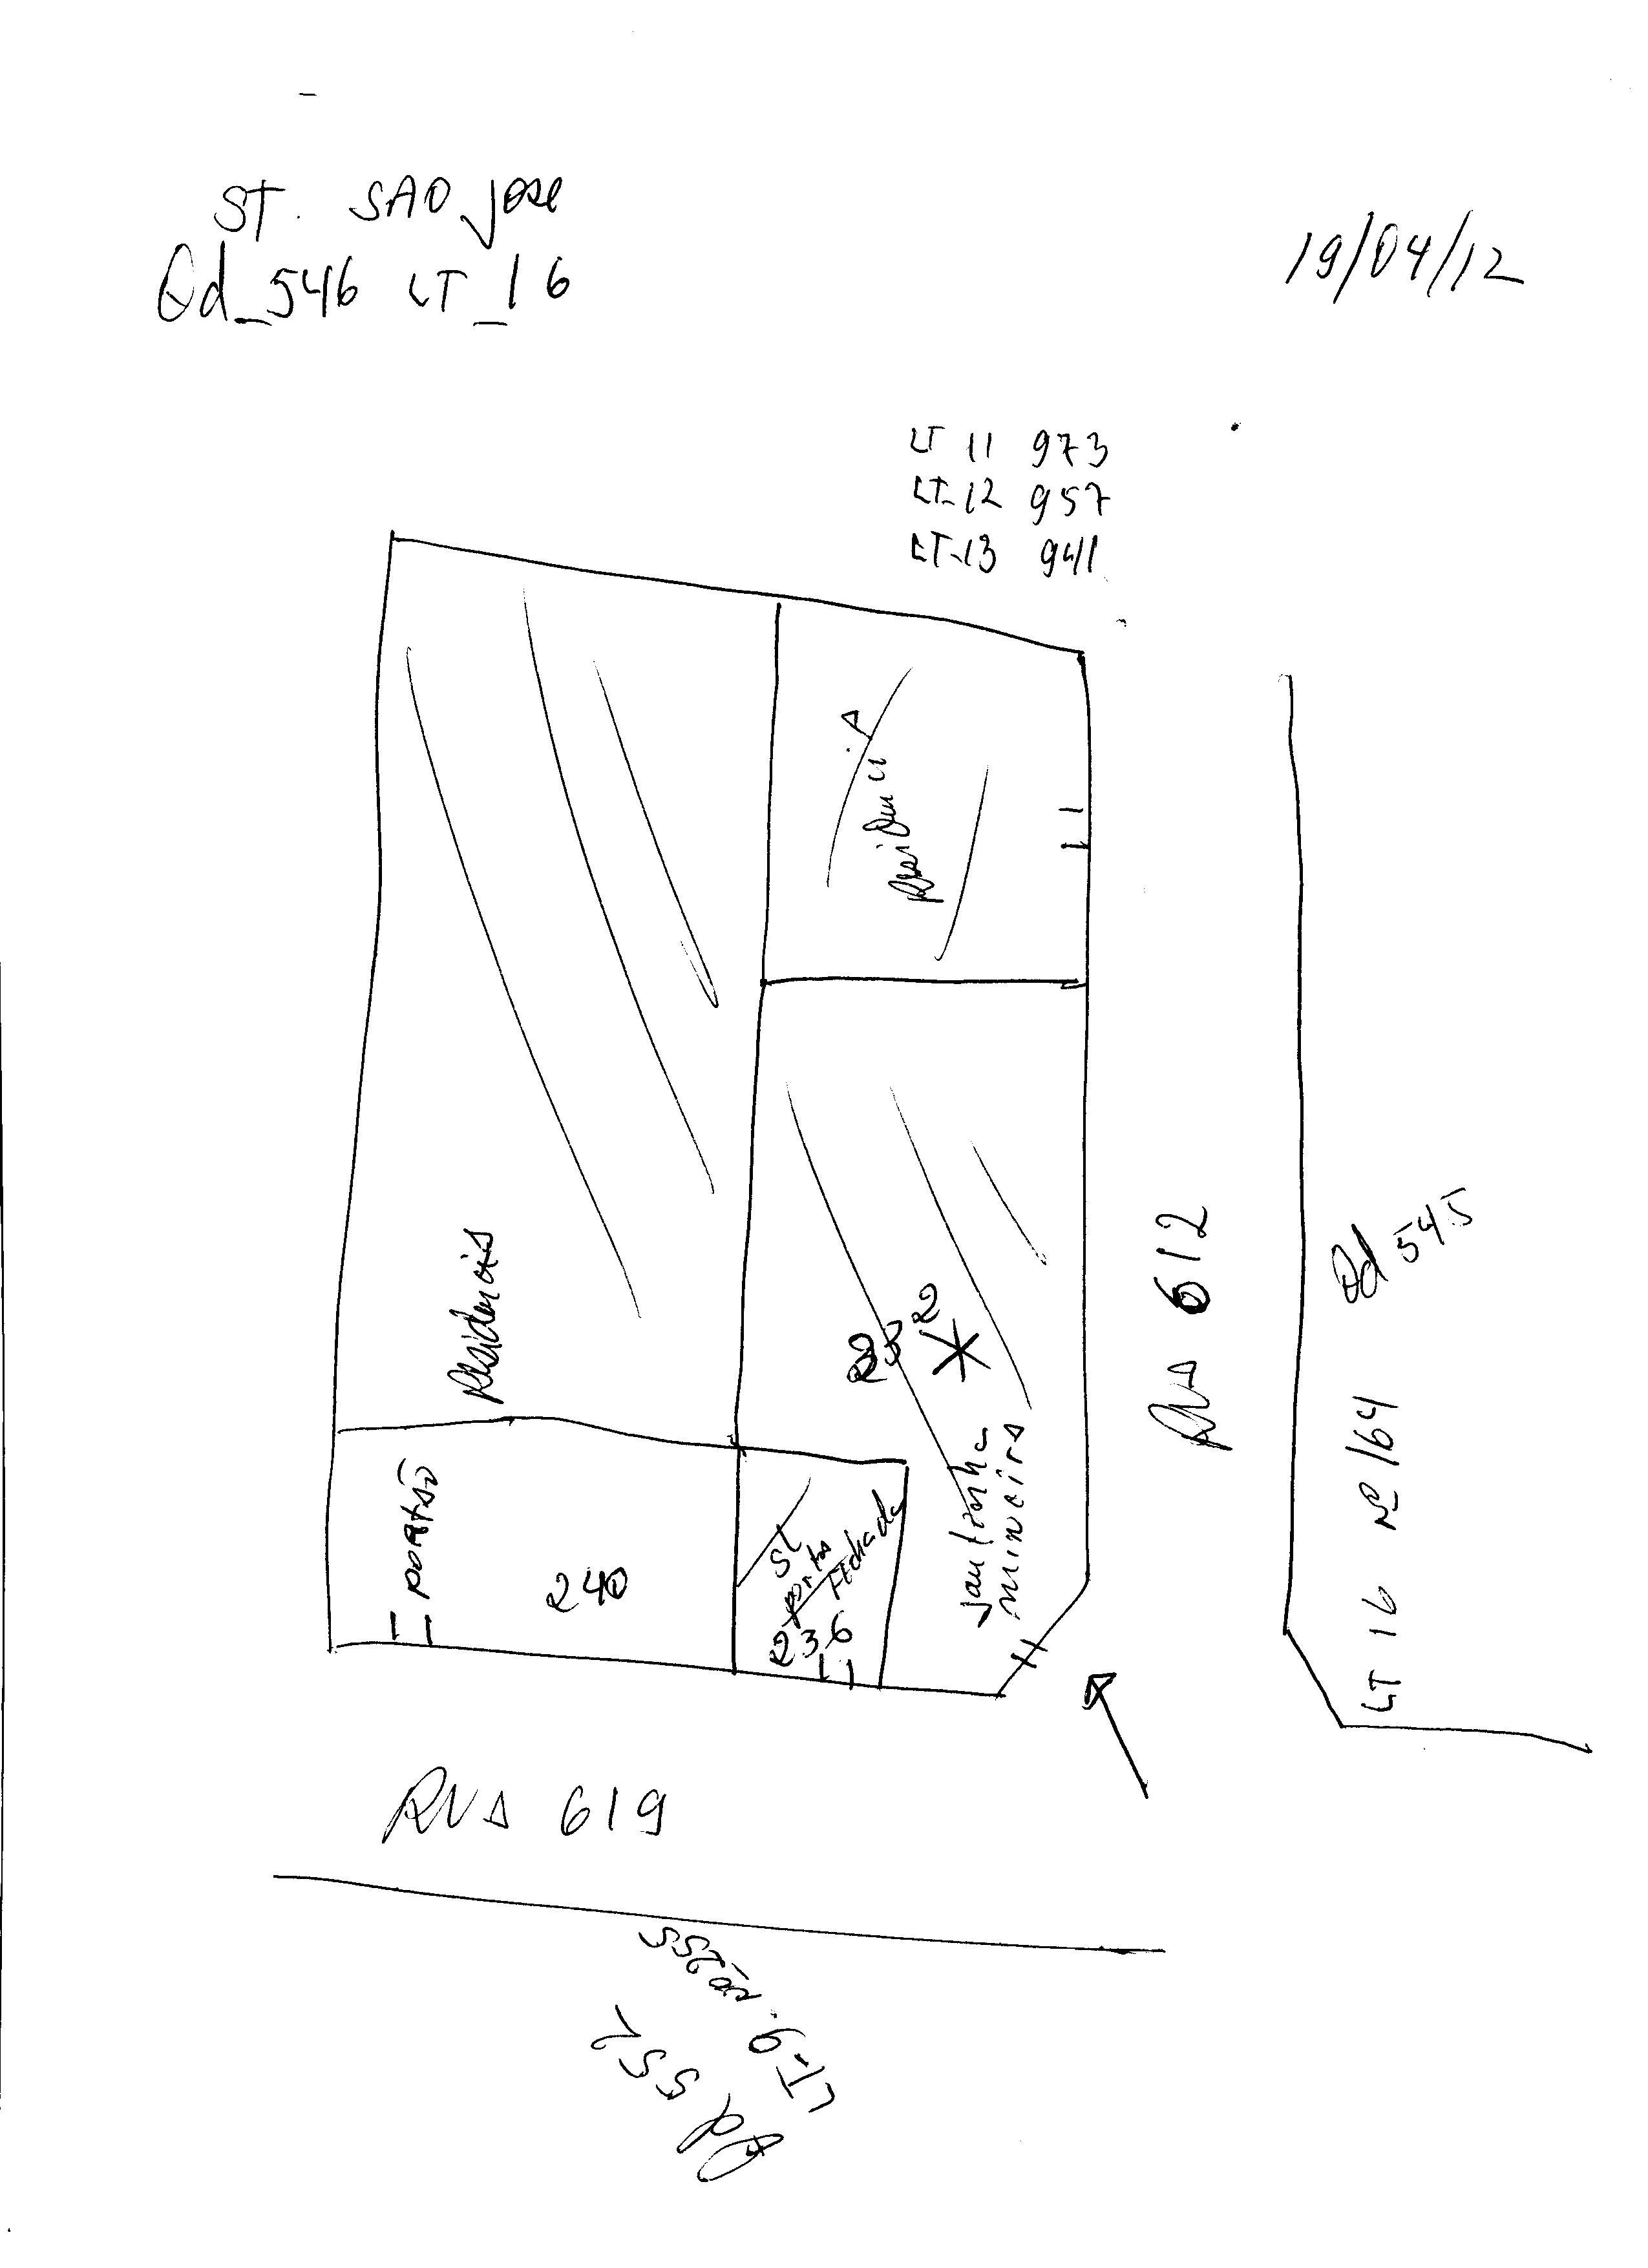 ST. SAO jose
Qd_546 LT_16
19/04/12
LT 11 973
LT-12 957
LT-13 941
Residencia
Residencia
portão
240
SL
portas
fechada
236
232
Jantinha
mineira
RUA 612
Qd 545
LT 16 Nº 164
RUA 619
LT-9. Nº 255
Qd 552